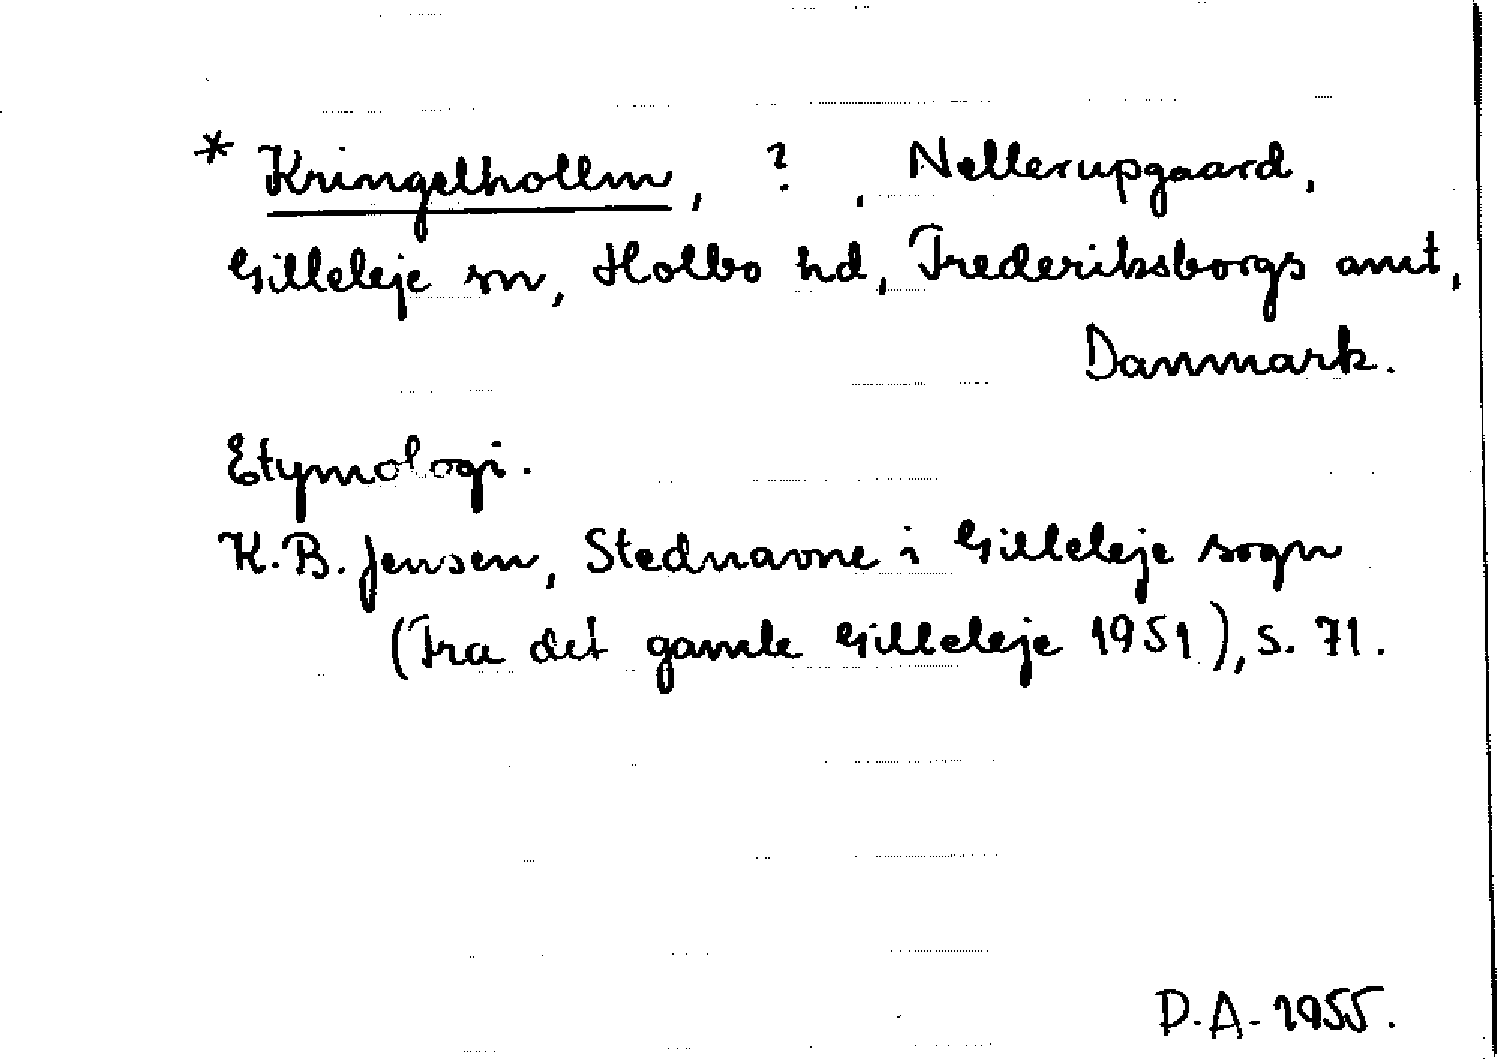 * Kringelhollm, ? , Nellerupgaard,
Gilleleje sn, Holbo hd, Frederiksborgs amt,
Danmark.
Etymologi.
K. B. Jensen, Stednavne i Gilleleje sogn
(Fra det gamle Gilleleje 1951), s. 71.
D.A. 1955.